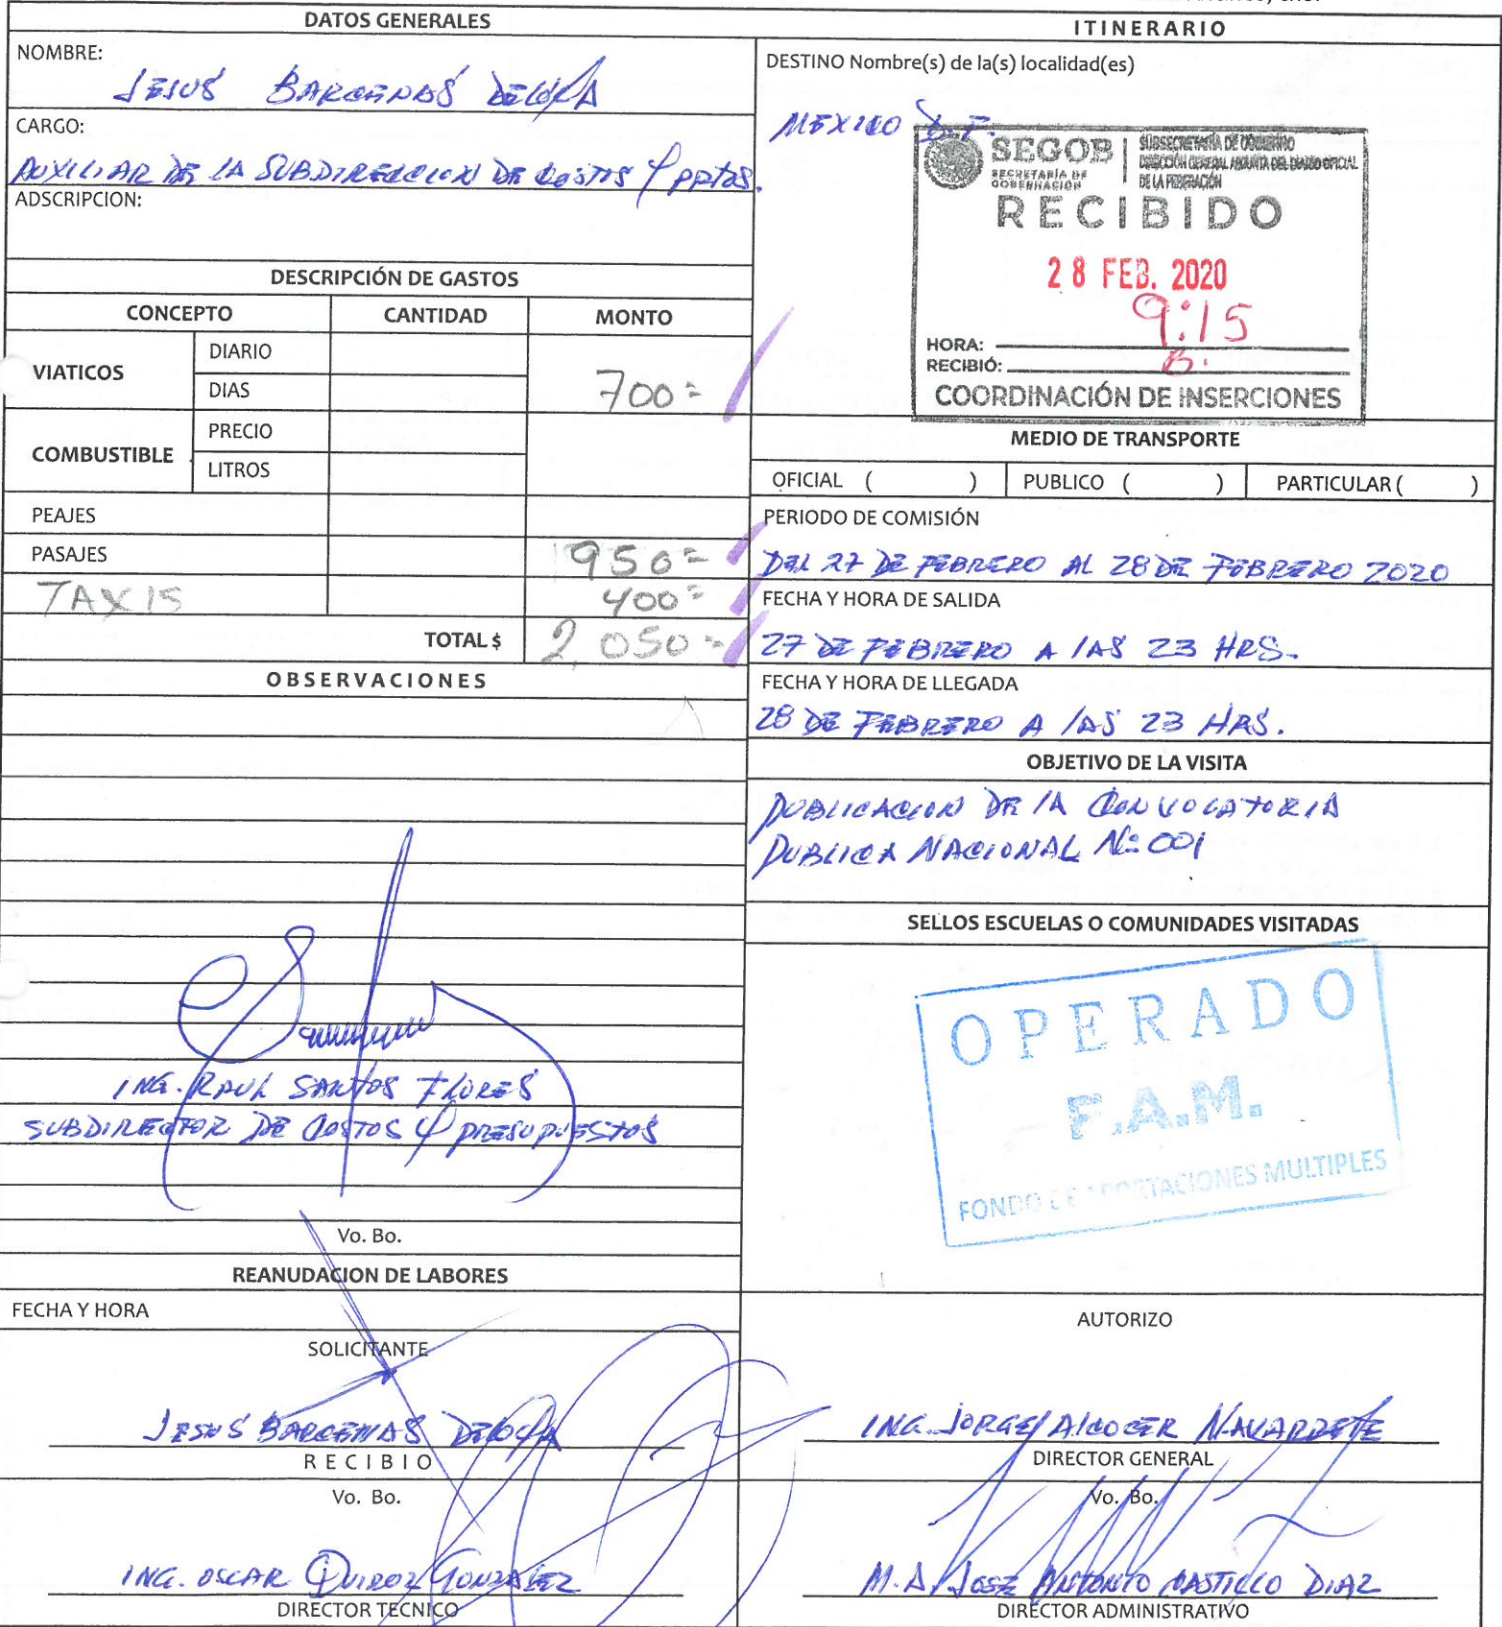 DATOS GENERALES
NOMBRE:
JESUS BARCENAS DELOYA
CARGO:
AUXILIAR DE LA SUBDIRECCION DE COSTOS Y PPTOS.
ADSCRIPCION:
DESCRIPCIÓN DE GASTOS
CONCEPTO CANTIDAD MONTO
VIATICOS
DIARIO
DIAS
700=
COMBUSTIBLE
PRECIO
LITROS
PEAJES
PASAJES 950=
TAXIS 400=
TOTAL $ 2,050=
OBSERVACIONES
ING. RAUL SANTOS FLORES
SUBDIRECTOR DE COSTOS Y PRESUPUESTOS
Vo. Bo.
REANUDACION DE LABORES
FECHA Y HORA
SOLICITANTE
JESUS BARCENAS DELOYA
RECIBIO
Vo. Bo.
ING. OSCAR QUIROZ GONZALEZ
DIRECTOR TECNICO
ITINERARIO
DESTINO Nombre(s) de la(s) localidad(es)
MEXICO D.F.
SEGOB
SECRETARÍA DE GOBERNACIÓN
SUBSECRETARÍA DE GOBIERNO
DIRECCIÓN GENERAL ADJUNTA DEL DIARIO OFICIAL
DE LA FEDERACIÓN
RECIBIDO
28 FEB. 2020
9:15
HORA:
RECIBIÓ: B.
COORDINACIÓN DE INSERCIONES
MEDIO DE TRANSPORTE
OFICIAL ( ) PUBLICO ( ) PARTICULAR ( )
PERIODO DE COMISIÓN
DEL 27 DE FEBRERO AL 28 DE FEBRERO 2020
FECHA Y HORA DE SALIDA
27 DE FEBRERO A LAS 23 HRS.
FECHA Y HORA DE LLEGADA
28 DE FEBRERO A LAS 23 HRS.
OBJETIVO DE LA VISITA
PUBLICACION DE LA CONVOCATORIA
PUBLICA NACIONAL No. 001
SELLOS ESCUELAS O COMUNIDADES VISITADAS
OPERADO
F.A.M.
FONDO DE APORTACIONES MULTIPLES
AUTORIZO
ING. JORGE ALCOCER NAVARRETE
DIRECTOR GENERAL
Vo. Bo.
M.A. JOSE ANTONIO CASTILLO DIAZ
DIRECTOR ADMINISTRATIVO